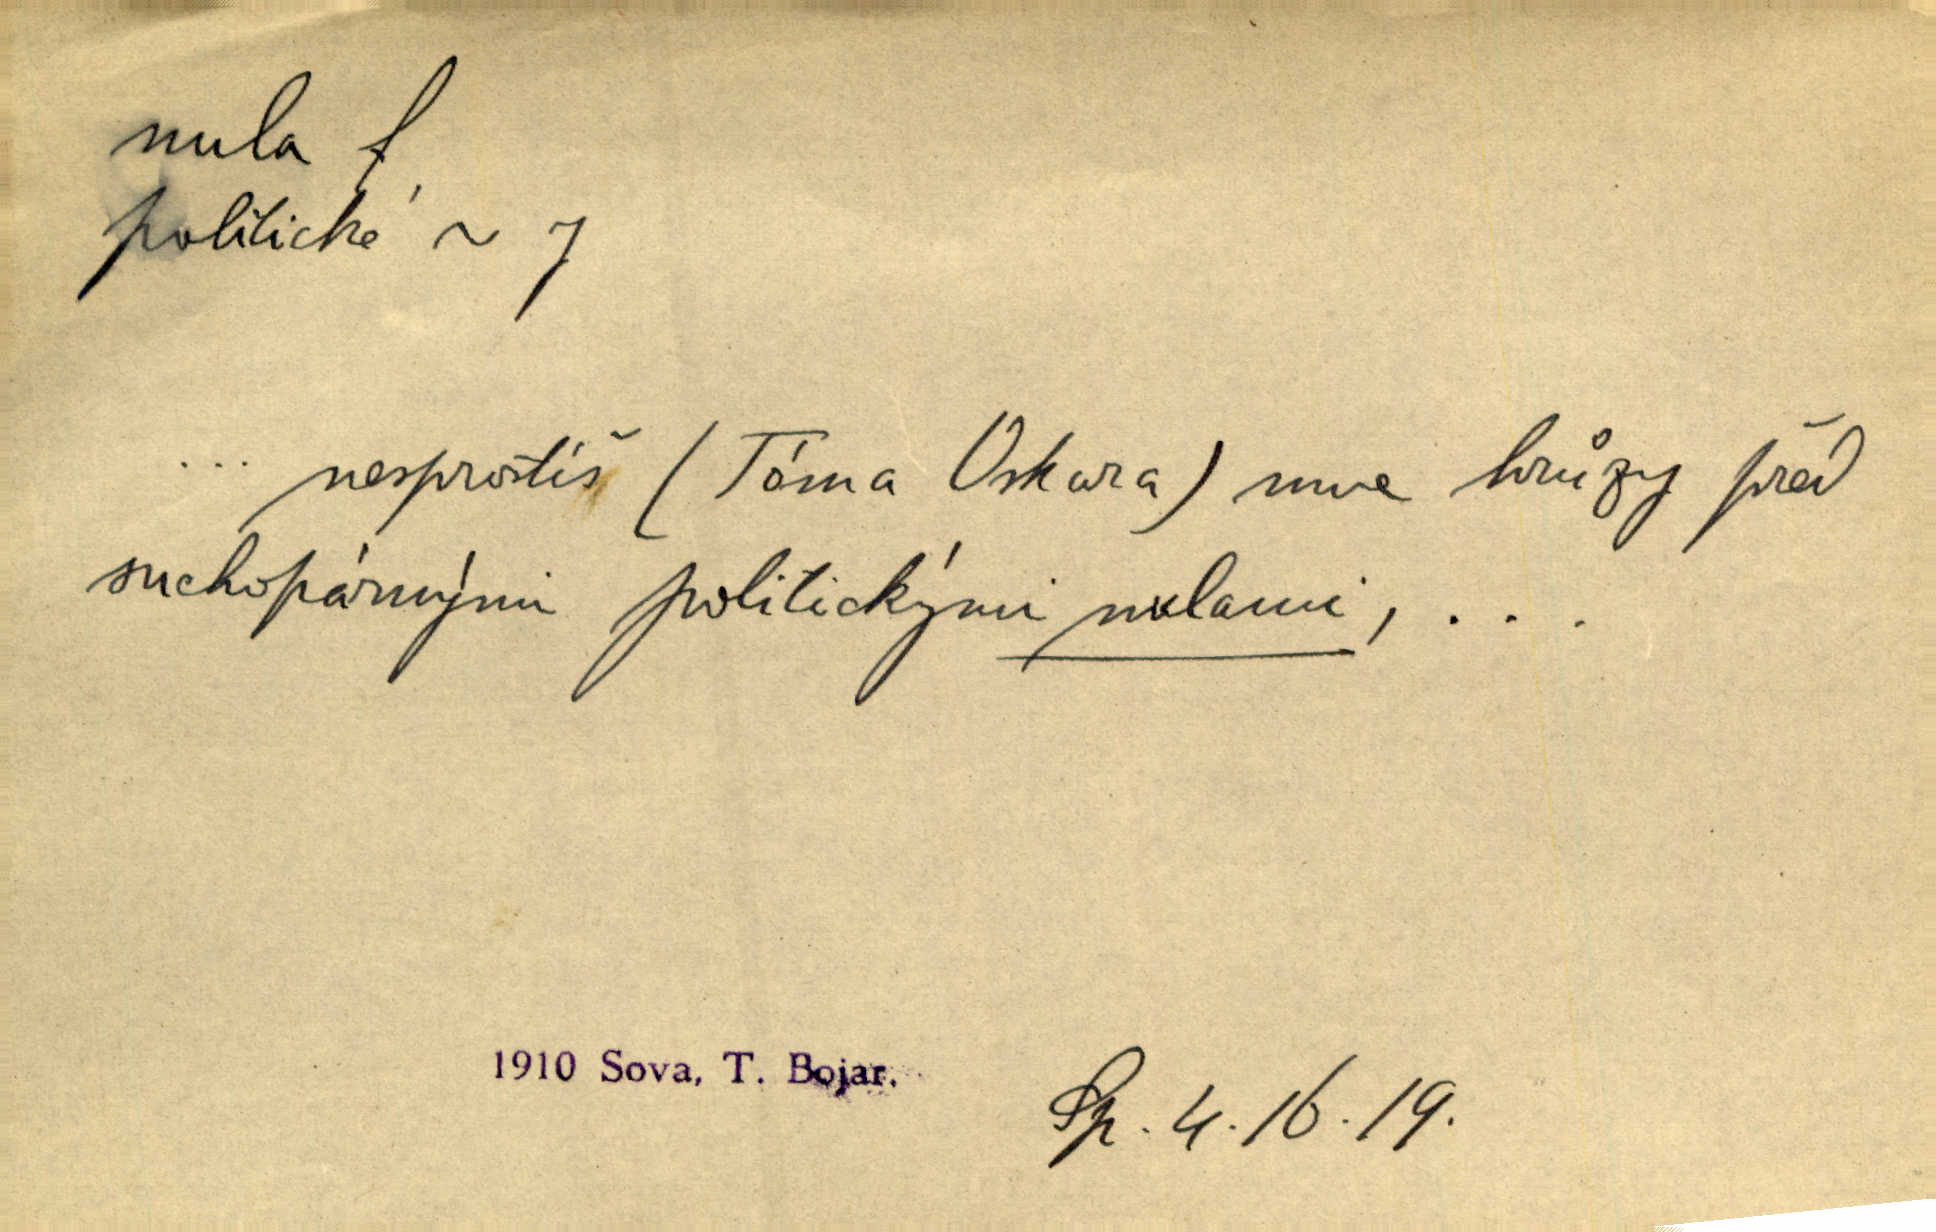 nula f
politické ~ 7
... nesprostíš (Tóma Oskara) mne hrůzy před
suchopárnými politickými nulami, ...
1910 Sova, T. Bojar.
Sp. 4. 16. 19.